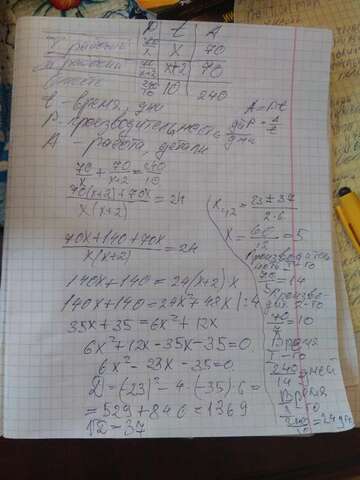 P t A
1 рабочий 70/x x 70
2 рабочий 70/x+2 x+2 70
Вместе 240/10 10 240
t - время, дни
P - производительность, дет/дни
A - работа, детали
A = Pt
P = A/t
70/x + 70/x+2 = 240/10
70(x+2)+70x / x(x+2) = 24
70x+140+70x / x(x+2) = 24
140x+140 = 24(x+2)x
140x+140 = 24x²+48x |:4
35x+35 = 6x²+12x
6x²+12x-35x-35=0
6x²-23x-35=0
D = (-23)²-4·(-35)·6=
=529+840=1369
√D = 37
x1,2 = 23±37 / 2·6
x = 60/12 = 5
Производитель
ность 1-го
70/5 = 14
Произво-
дит. 2-го
70/7 = 10
Время
1-го
240 дней
14
Время
240/10 = 24 дн